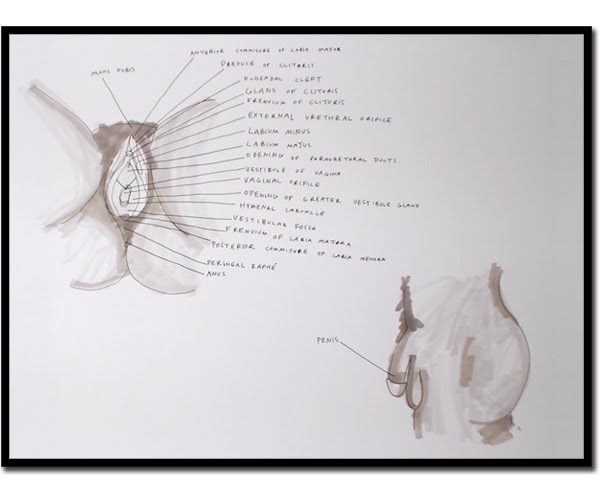 ANTERIOR COMMISURE OF LABIA MAJOR
MONS PUBIS
PREPUCE OF CLITORIS
PUDENDAL CLEFT
GLANS OF CLITORIS
FRENULUM OF CLITORIS
EXTERNAL URETHRAL ORIFILE
LABIUM MINUS
LABIUM MAJUS
OPENING OF PARAURETHRAL DUCTS
VESTIBULE OF VAGINA
VAGINAL ORIFILE
OPENING OF GREATER VESTIBULE GLAND
HYMENAL CARUNCLE
VESTIBULAR FOSSA
FRENULUM OF LABIA MAJORA
POSTERIOR COMMISURE OF LABIA MENORA
PERINEAL RAPHÉ
ANUS
PENIS